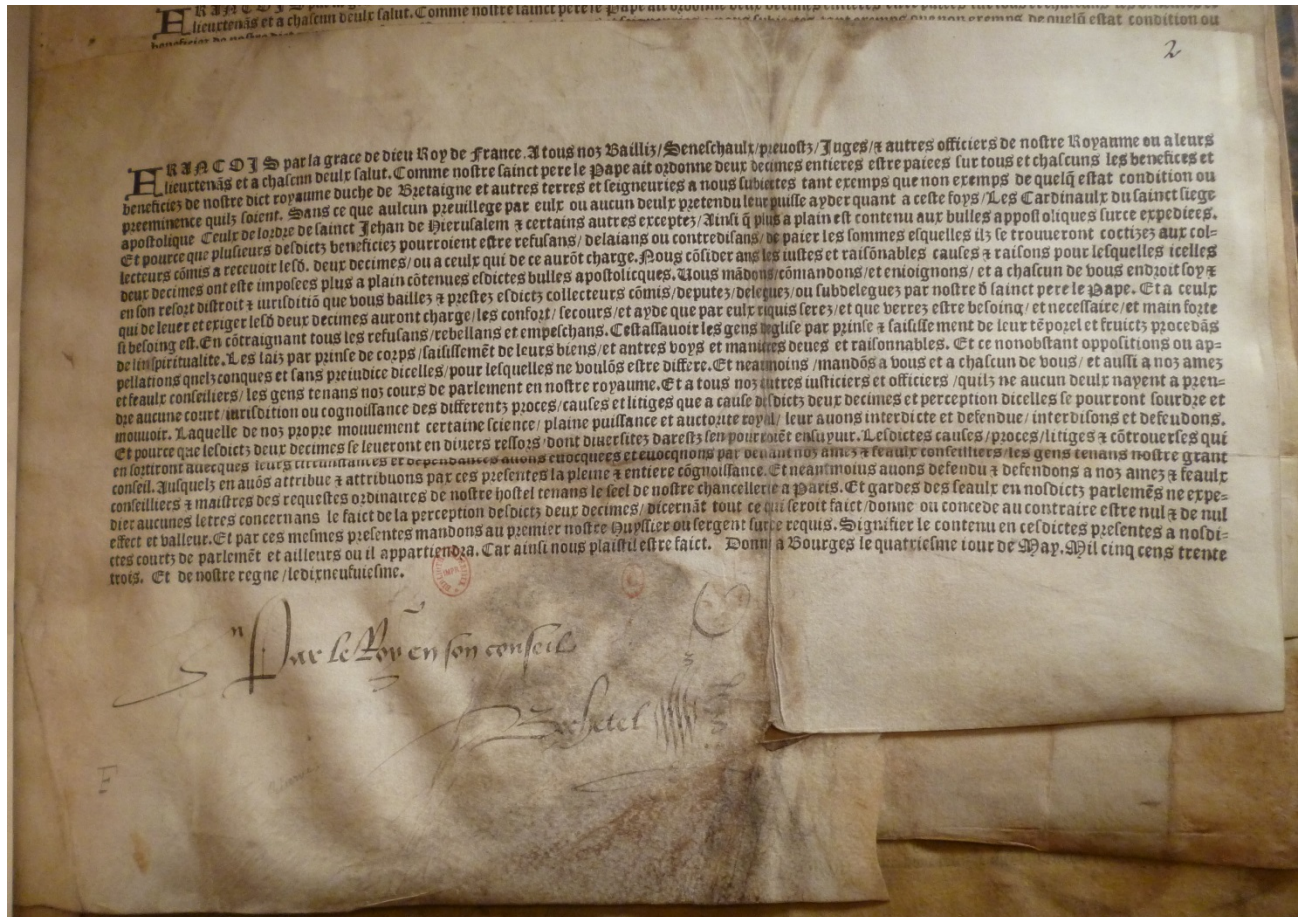 FRANCOIS par la grace de dieu Roy de
lieuxtenãs et a chascun deulx salut. Comme nostre sainct pere le Pape ait ordonne deux decimes entieres
de quelq̃ estat condition ou
2
FRANCOIS par la grace de dieu Roy de France. A tous noz Bailliz/Seneschaulx/preuostz/Juges/⁊ autres officiers de nostre Royaume ou a leurs
lieuxtenãs et a chascnn deulx salut. Comme nostre sainct pere le Pape ait ordonne deux decimes entieres estre paiees sur tous et chascuns les benefices et
beneficiez de nostre dict royaume duche de Bretaigne et autres terres et seigneuries a nous subiectes tant exemps que non exemps de quelq̃ estat condition ou
preeminence quilz soient. Sans ce que aulcun preuillege par eulx ou aucun deulx pretendu leur puisse ayder quant a ceste foys/Les Cardinaulx du sainct siege
apostolique Ceulx de lordre de sainct Jehan de Hierusalem ⁊ certains autres exceptez/Ainsi q̃ plus a plain est contenu aux bulles appostoliques surce expediees.
Et pource que plusieurs desdictz beneficiez pourroient estre refusans/delaians ou contredisans/de paier les sommes esquelles ilz se trouueront coctizez aux col-
lecteurs cõmis a receuoir lesd̃. deux decimes/ou a ceulx qui de ce aurõt charge. Nous cõsiderans les iustes et raisõnables causes ⁊ raisons pour lesquelles icelles
deux decimes ont este imposees plus a plain cõtenues esdictes bulles apostolicques. Uous mãdons/cõmandons/et enioignons/et a chascun de vous endroit soy ⁊
en son resort distroit ⁊ iurisditiõ que vous baillez ⁊ prestez esdictz collecteurs cõmis/deputez/deleguez/ou subdeleguez par nostre d̃ sainct pere le Pape. Et a ceulx
qui de leuer et exiger lesd̃ deux decimes auront charge/les confort/secours/et ayde que par eulx requis serez/et que verrez estre besoing/et necessaire/et main forte
si besoing est. En cõtraignant tous les refusans/rebellans et empeschans. Cestassauoir les gens deglise par prinse ⁊ saisissement de leur tẽporel et fruictz procedãs
de linspiritualite. Les laiz par prinse de corps/saisissemẽt de leurs biens/et antres voys et manieres deues et raisonnables. Et ce nonobstant oppositions ou ap-
pellations qnelzconques et sans preiudice dicelles/pour lesquelles ne voulõs estre differe. Et neatmoins/mandõs a vous et a chascun de vous/et aussi a noz amez
et feaulx conseiliers/les gens tenans noz cours de parlement en nostre royaume. Et a tous noz autres iusticiers et officiers/quilz ne aucun deulx nayent a pren-
dre aucune court/iurisdition ou cognoissance des differentz proces/causes et litiges que a cause desdictz deux decimes et perception dicelles se pourront sourdre et
mouuoir. Laquelle de noz propre mouuement certaine science/plaine puissance et auctorite royal/leur auons interdicte et defendue/interdisons et defeudons.
Et pource que lesdictz deux decimes se leueront en diuers ressors/dont diuersitez darestz sen pourroiẽt ensuyuir. Lesdictes causes/proces/litiges ⁊ cõtrouerses qui
en sortiront auecques leurs circunstances et dependances auons euocquees et euocqnons par deuant noz amez ⁊ feaulx conseilliers/les gens tenans nostre grant
conseil. Ausquelz en auõs attribue ⁊ attribuons par ces presentes la pleine ⁊ entiere cõgnoissance. Et neantmoius auons defendu ⁊ defendons a noz amez ⁊ feaulx
conseilliers ⁊ maistres des requestes ordinaires de nostre hostel tenans le seel de nostre chancellerie a Paris. Et gardes des seaulx en nosdictz parlemẽs ne expe-
dier aucunes letres concernans le faict de la perception desdictz deux decimes/dicernãt tout ce qui seroit faict/donne ou concede au contraire estre nul ⁊ de nul
effect et valleur. Et par ces mesmes presentes mandons au premier nostre Huyssier ou sergent surce requis. Signifier le contenu en cesdictes presentes a nosdi-
ctes courtz de parlemẽt et ailleurs ou il appartiendra. Car ainsi nous plaistil estre faict. Donn a Bourges le quatriesme iour de May. Mil cinq cens trente
trois. Et de nostre regne/ledixneufuiesme.
Par le Roy en son conseil
Bochetel